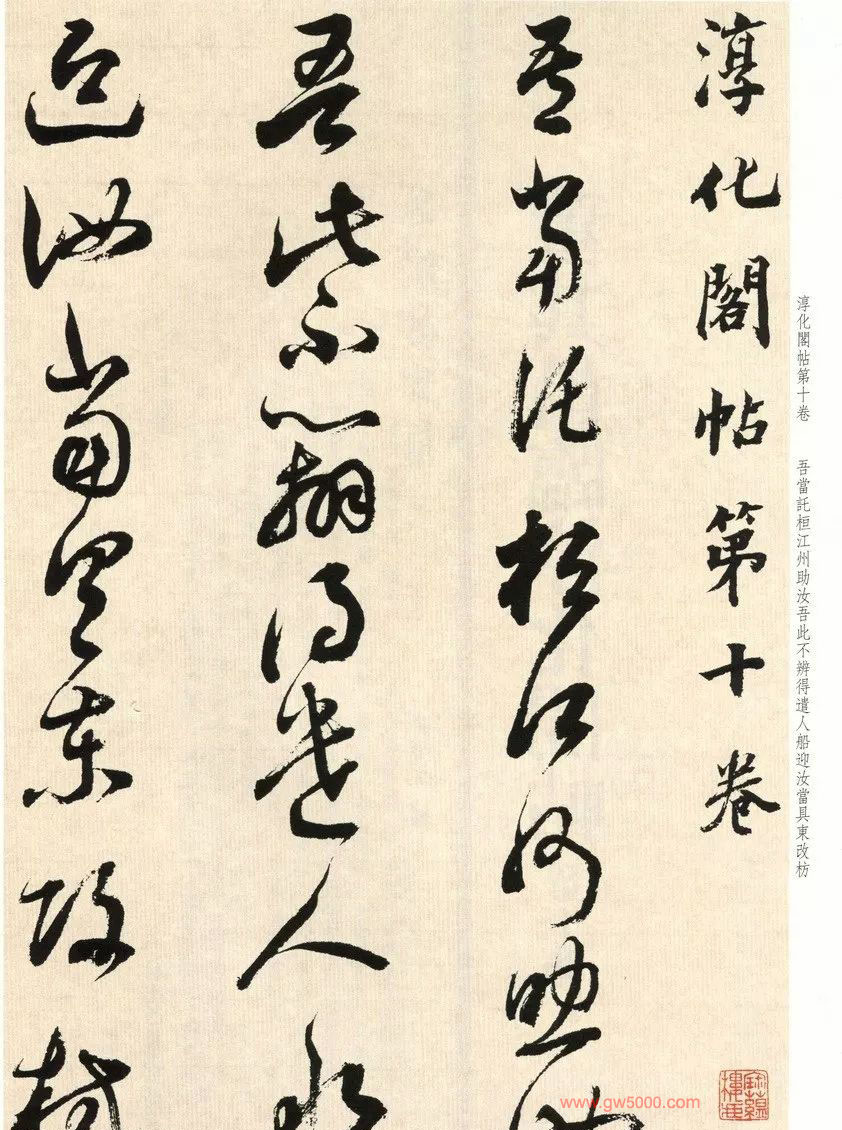 淳化閣帖第十卷 吾當託桓江州助汝吾此不辨得遣人船迎汝當具東改枋
淳化閣帖第十卷
吾當託桓江州助汝
吾此不辨得遣人船
迎汝當具東改枋
www.gw5000.com